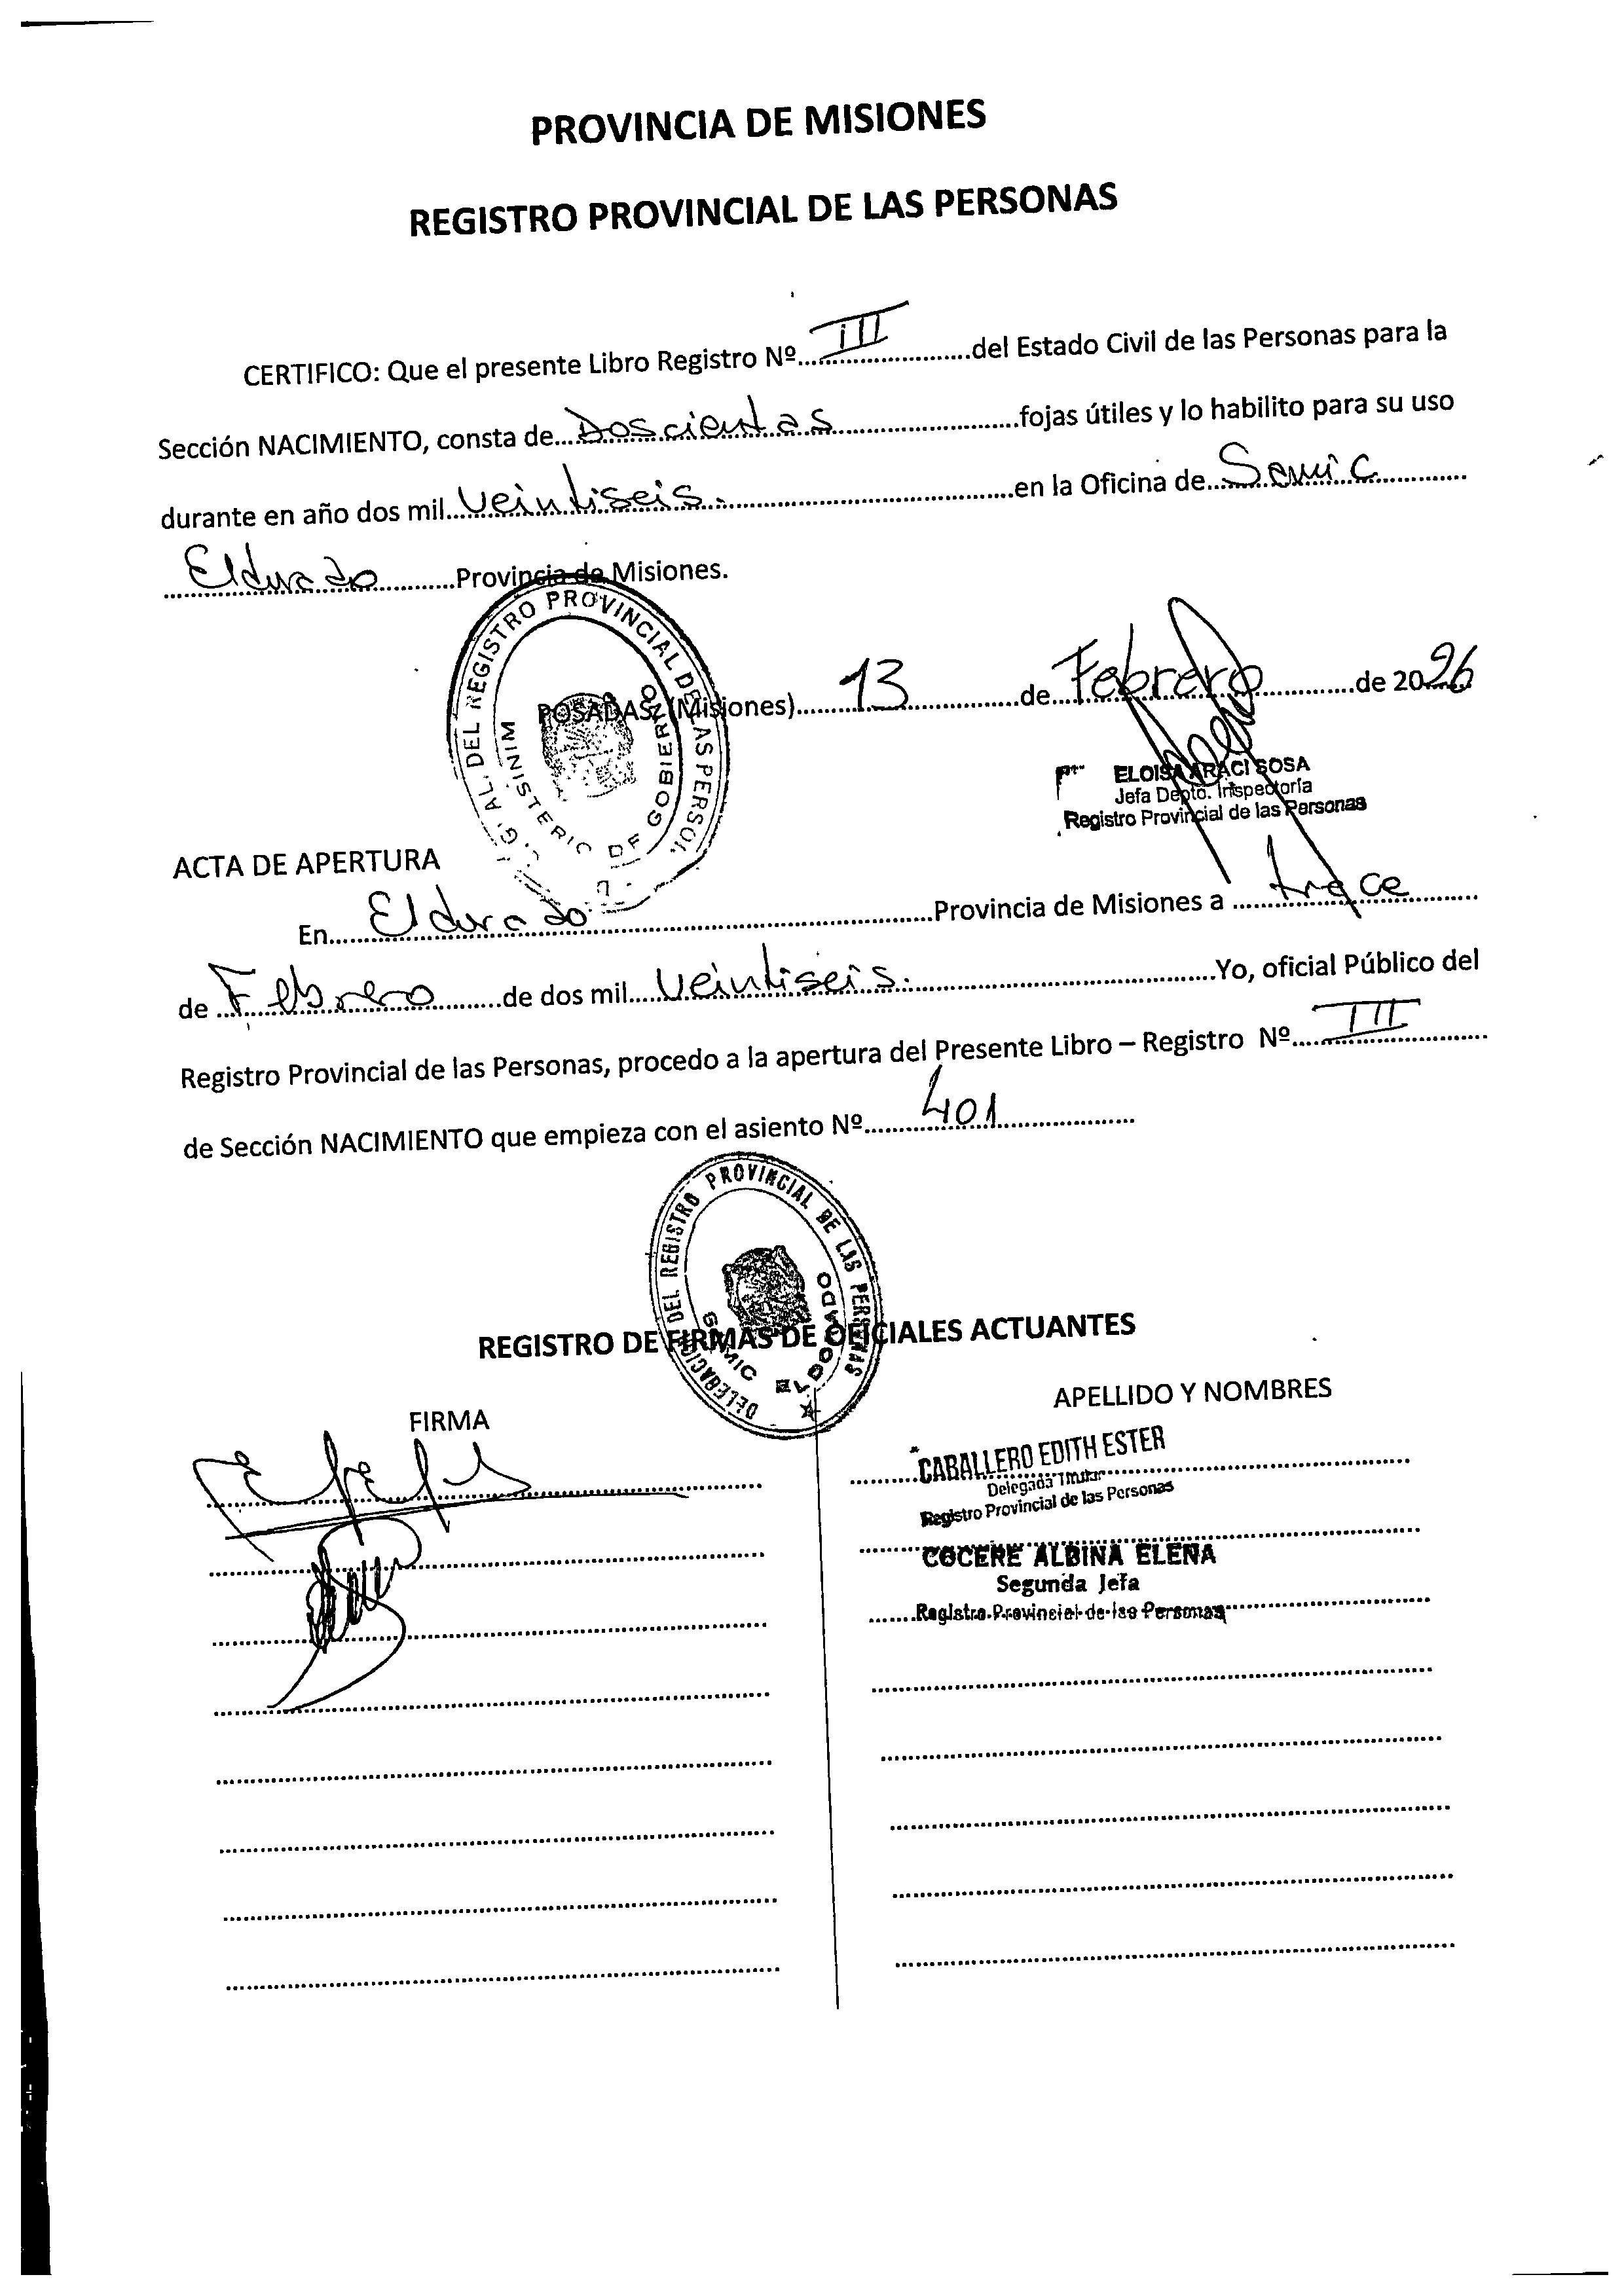 PROVINCIA DE MISIONES
REGISTRO PROVINCIAL DE LAS PERSONAS
CERTIFICO: Que el presente Libro Registro Nº III del Estado Civil de las Personas para la
Sección NACIMIENTO, consta de Doscientas fojas útiles y lo habilito para su uso
durante en año dos mil Veintiseis. en la Oficina de Samic
Eldorado Provincia de Misiones.
DEL REGISTRO PROVINCIAL DE LAS PERSO
MINISTERIO DE GOBIERNO
POSADAS, (Misiones) 13 de Febrero de 2026
ELOISA ARACI SOSA
Jefa Depto. Inspectoría
Registro Provincial de las Personas
ACTA DE APERTURA
En Eldorado Provincia de Misiones a trece
de Febrero de dos mil Veintiseis. Yo, oficial Público del
Registro Provincial de las Personas, procedo a la apertura del Presente Libro – Registro Nº III
de Sección NACIMIENTO que empieza con el asiento Nº 401
DELEGACION DEL REGISTRO PROVINCIAL DE LAS PERSONAS
SAMIC ELDORADO
REGISTRO DE FIRMAS DE OFICIALES ACTUANTES
FIRMA
APELLIDO Y NOMBRES
CABALLERO EDITH ESTER
Delegada Titular
Registro Provincial de las Personas
COCERE ALBINA ELENA
Segunda Jefa
Registro Provincial de las Personas